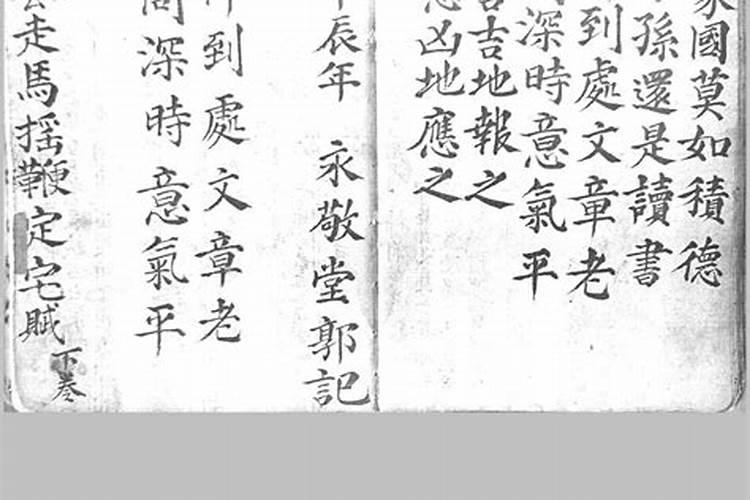 國莫如積德
孫還是讀書
到處文章老
深時意氣平
吉地報之
凶地應之
辰年 永敬堂郭記
到處文章老
深時意氣平
走馬摇鞭定宅賦下卷